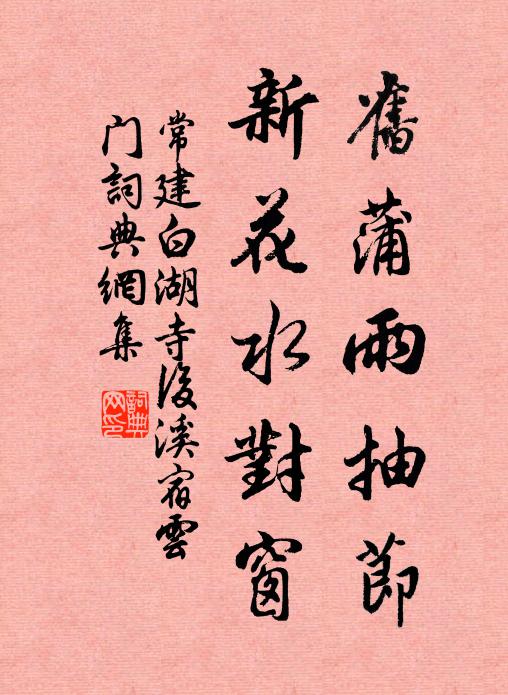 舊蒲雨抽節
新花水對窗
常建白湖寺後溪宿雲
门詞典網集
詞典
网印